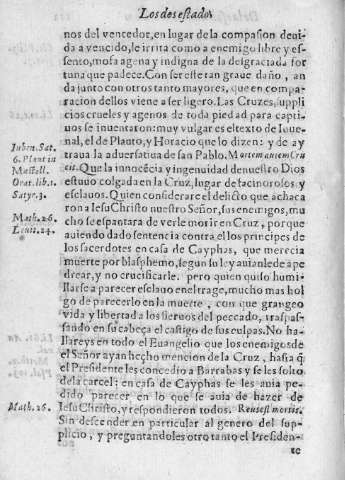 Los desestados
nos del vencedor, en lugar de la compasion deui-
da a vencido, le irrita como a enemigo libre y es-
sento, mosa agena y indigna de la desgraciada for
tuna que padece. Con ser este tan graue daño, an
da junto con otros tanto mayores, que en compa-
racion dellos viene a ser ligero. Las Cruzes, suppli
cios crueles y agenos de toda piedad para capti-
uos se inuentaron: muy vulgar es el texto de Iuue-
nal, el de Plauto, y Horacio que lo dizen: y de ay
traua la aduersatiua de san Pablo. Mortem autem Cru
cis. Que la innocécia y ingenuidad de nuestro Dios
estuuo colgada en la Cruz, lugar de facinorosos y
esclauos. Quien considerare el delicto que achaca
ron a Iesu Christo nuestro Señor, sus enemigos, mu
cho se espantara de verle morir en Cruz, porque
auiendo dado sentencia contra el los principes de
los sacerdotes en casa de Cayphas, que merecia
muerte por blasphemo, segun su ley auian le de ape
drear, y no crucificarle. pero quien quiso humi-
llarse a parecer esclauo en el trage, mucho mas hol
go de parecerlo en la muerte, con que grangeo
vida y libertad a los sieruos del peccado, traspas-
sando en su cabeça el castigo de sus culpas. No ha-
llareys en todo el Euangelio que los enemigos de
el Señor ayan hecho mencion de la Cruz, hasta q̃
el Presidente les concedio a Barrabas y se les solto
de la carcel: en casa de Cayphas se les auia pe-
dido parecer en lo que se auia de hazer de
Iesu Christo, y respondieron todos. Reus est mortis.
Sin descender en particular al genero del sup-
plicio, y preguntandoles otro tanto el Presiden-
te
Iuben. Sat.
6. Plaut in
Mostell.
Orat. lib. 1.
Satyr. 3.
Math. 26.
Leuit. 24.
Math. 26.